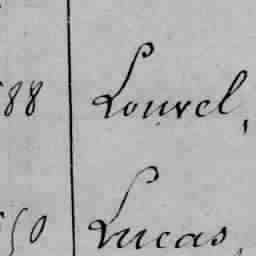 88 Louvel,
50 Lucas,